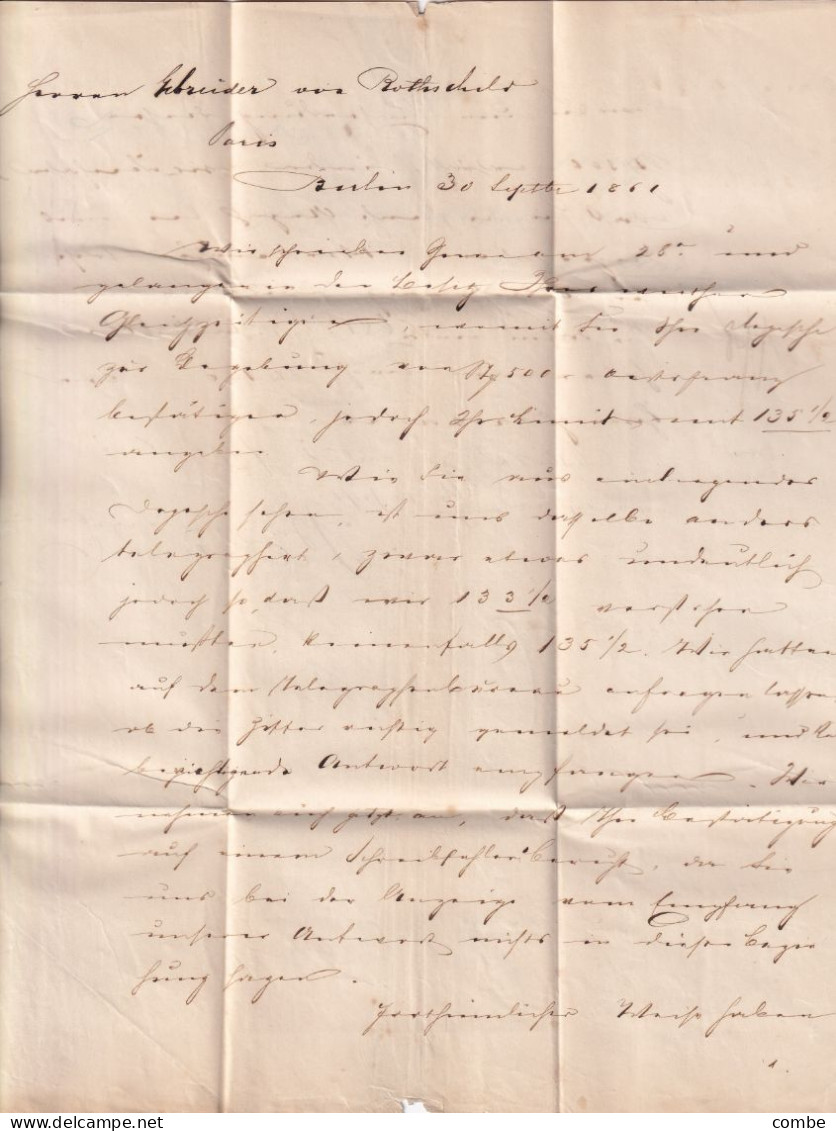 Herren Gebrüder von Rothschild
Paris
Berlin 30 Septbr 1861
Wir schrieben Ihnen am 28n und
gelangen in den Besitz Ihres werthen
Gleichzeitigen, womit Sie Ihre Depesche
zur Begebung von 500
bestätigen, jedoch Ihr Limit mit 135 1/2
angeben
Wie Sie aus einliegender
Depesche sehen, ist uns dasselbe anders
telegraphirt, zwar etwas undeutlich
jedoch so, daß wir 133 1/2 verstehen
mußten, keinenfalls 135 1/2. Wir hatten
auf dem Telegraphenbureau anfragen lassen
ob die Ziffer richtig gemeldet sei, und
Antwort empfangen. Wir
nehmen auch jetzt an, daß Ihre Bestätigung
auf einem Schreibfehler beruht, da Sie
uns bei der Anzeige vom Empfang
unserer Antwort nichts in dieser Bezie
hung sagen.
Irrthümlicher Weise haben
combe